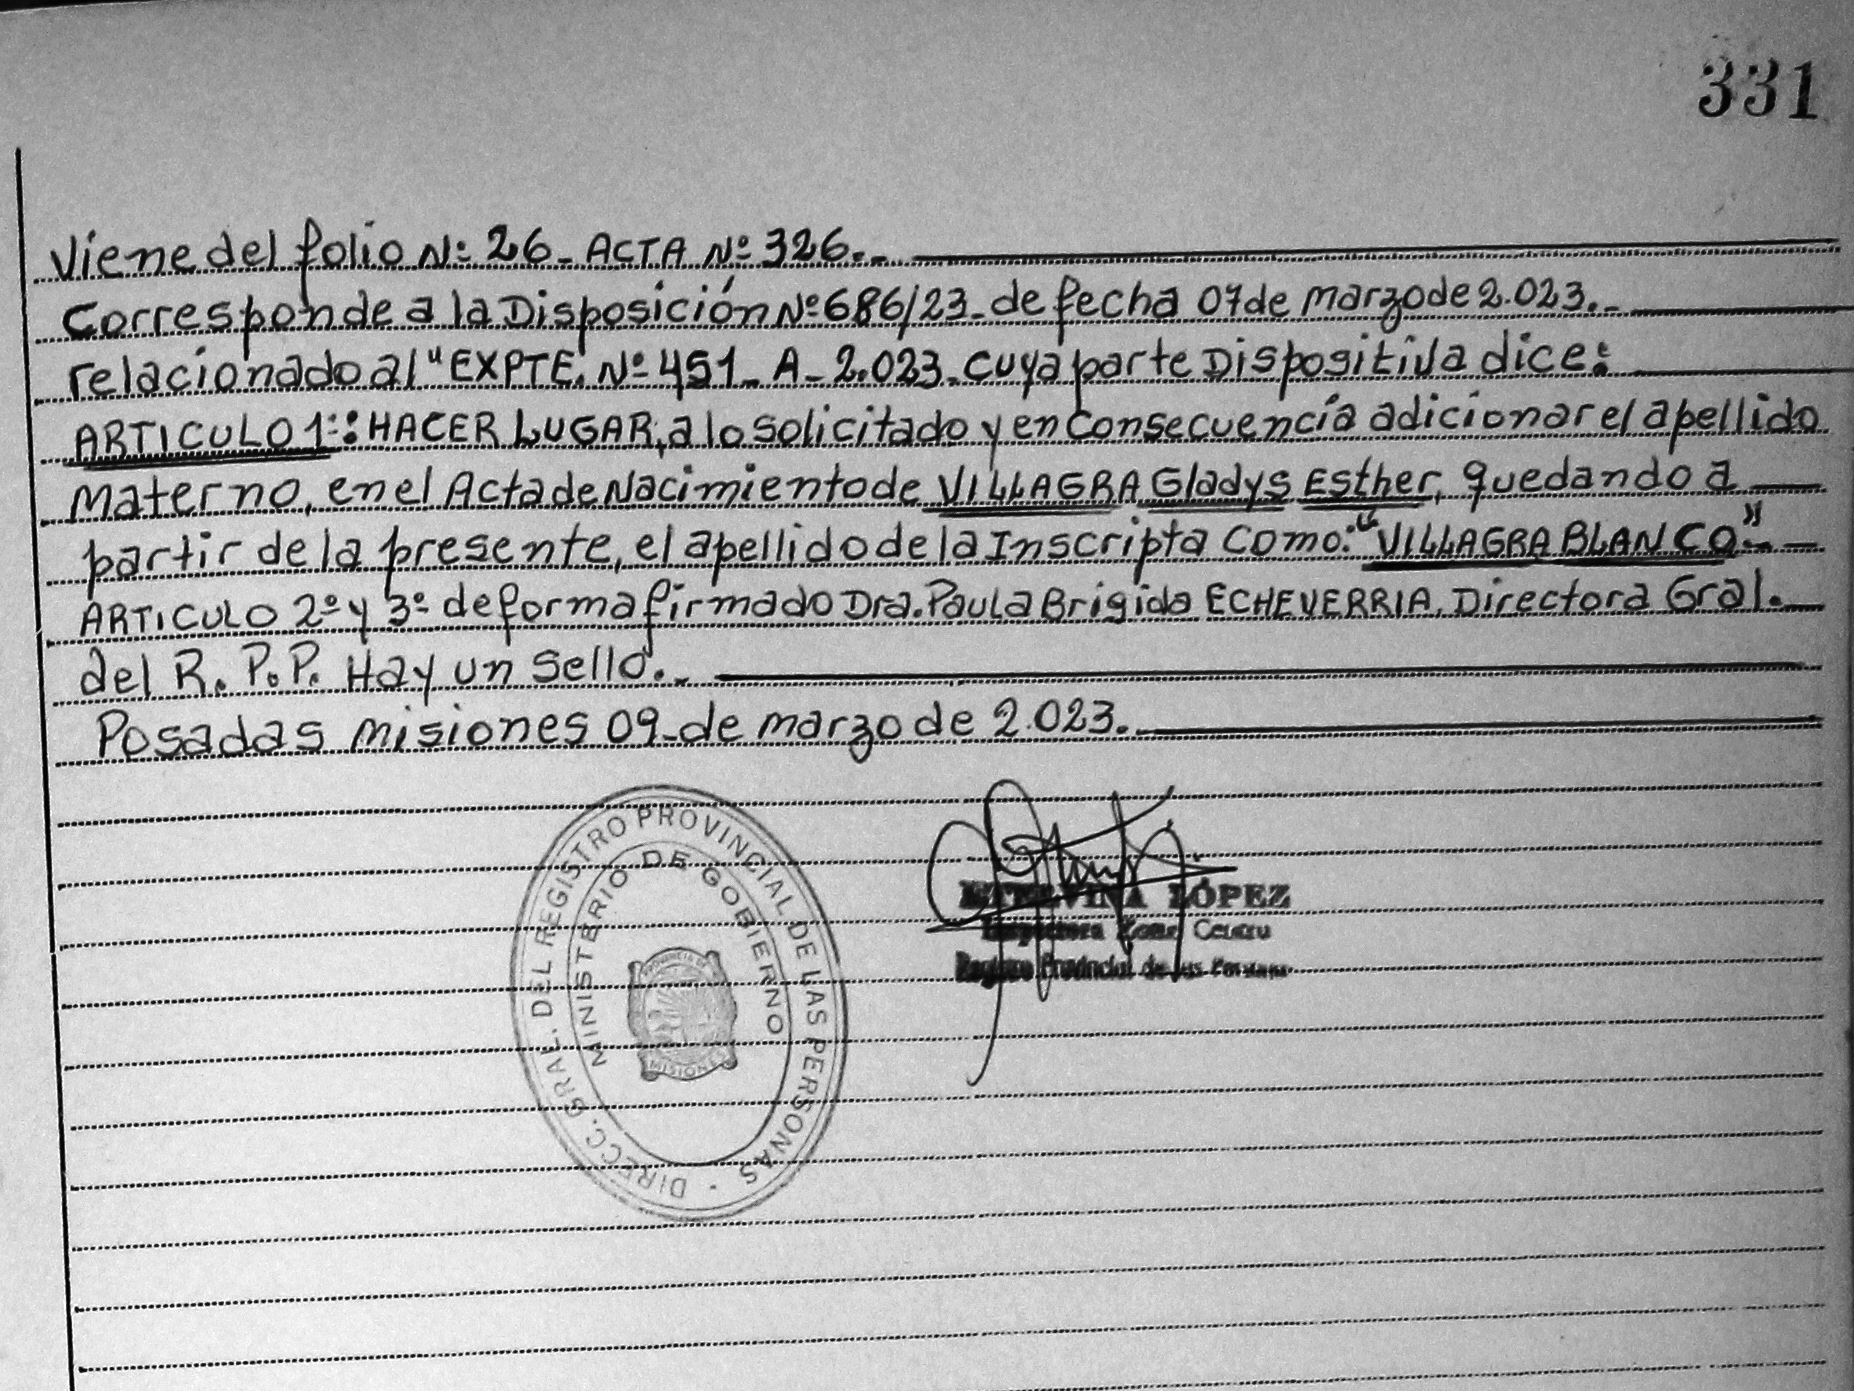 331
Viene del folio Nº 26_ ACTA Nº 326._
Corresponde a la Disposición Nº 686/23_ de fecha 07 de marzo de 2.023._
relacionado al "EXPTE. Nº 451_ A_ 2.023_ cuya parte Dispositiva dice:
ARTICULO 1º: HACER LUGAR, a lo solicitado y en Consecuencía adicionar el apellido
Materno, en el Acta de Nacimiento de VILLAGRA Gladys Esther, quedando a
partir de la presente, el apellido de la Inscripta Como: "VILLAGRA BLANCO"._
ARTICULO 2º y 3º de forma firmado Dra. Paula Brigida ECHEVERRIA, Directora Gral.
del R. P. P. Hay un Sello._
Posadas misiones 09_de marzo de 2.023._
DIRECC. GRAL. DEL REGISTRO PROVINCIAL DE LAS PERSONAS
MINISTERIO DE GOBIERNO
PROVINCIA DE
MISIONES
LÓPEZ
Inspectora Zona Centro
Registro Provincial de las Personas